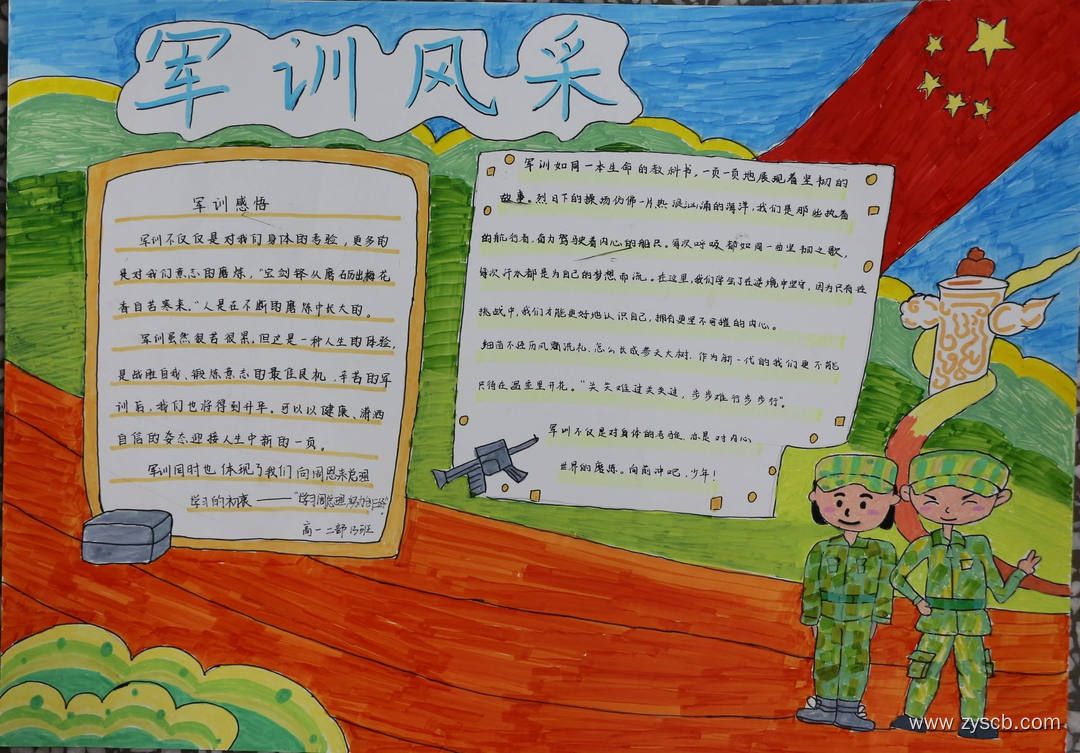 军训风采
军训感悟
军训不仅仅是对我们身体的考验，更多的
是对我们意志的磨炼，"宝剑锋从磨砺出梅花
香自苦寒来。"人是在不断的磨炼中长大的。
军训虽然很苦很累，但这是一种人生的体验，
是战胜自我、锻炼意志的最佳良机，辛苦的军
训后，我们也将得到升华。可以以健康、潇洒
自信的姿态迎接人生中新的一页。
军训同时也体现了我们向周恩来总理
学习的初衷——"学习周总理 努力
高一二部13班
军训如同一本生命的教科书，一页一页地展现着坚韧的
故事。烈日下的操场仿佛一片热浪汹涌的海洋，我们是那些执着
的航行者，奋力驾驶着内心的船只。每次呼吸都如同一曲坚韧之歌，
每次汗水都是为自己的梦想而流。在这里，我们学会了在逆境中坚守，因为只有在
挑战中，我们才能更好地认识自己，拥有更坚不可摧的内心。
细苗不经历风霜洗礼，怎么长成参天大树，作为新一代的我们更不能
只待在温室里开花。"关关难过关关过，步步难行步步行"。
军训不仅是对身体的考验，亦是对内心
世界的磨炼。向前冲吧，少年！
www.zyscb.com